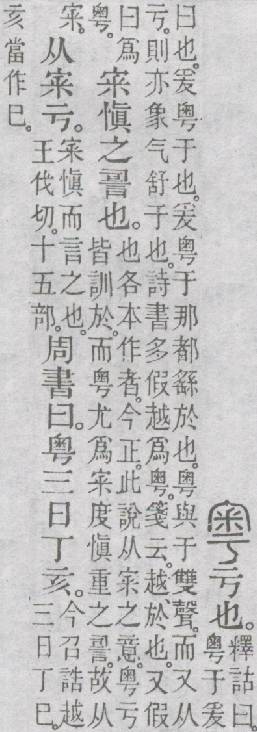 粵亏也。
釋詁曰。
粵于爰
曰也。爰粵于也。爰粵于那都繇於也。粵與于雙聲。而又从
亏。則亦象气舒于也。詩書多假越爲粵。箋云。越、於也。又假
曰爲
粵。
宷愼之䛐也。
也各本作者。今正。此說从宷之意。粵亏
皆訓於。而粵尤爲宷度愼重之䛐。故从
宷。
从宷亏。
宷愼而言之也。
王伐切。十五部。
周書曰。粵三日丁亥。
今召誥越
三日丁巳。
亥當作巳。